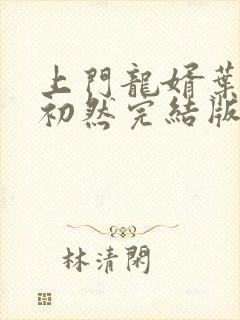 上門龍婿葉
初然完結版
林清閑